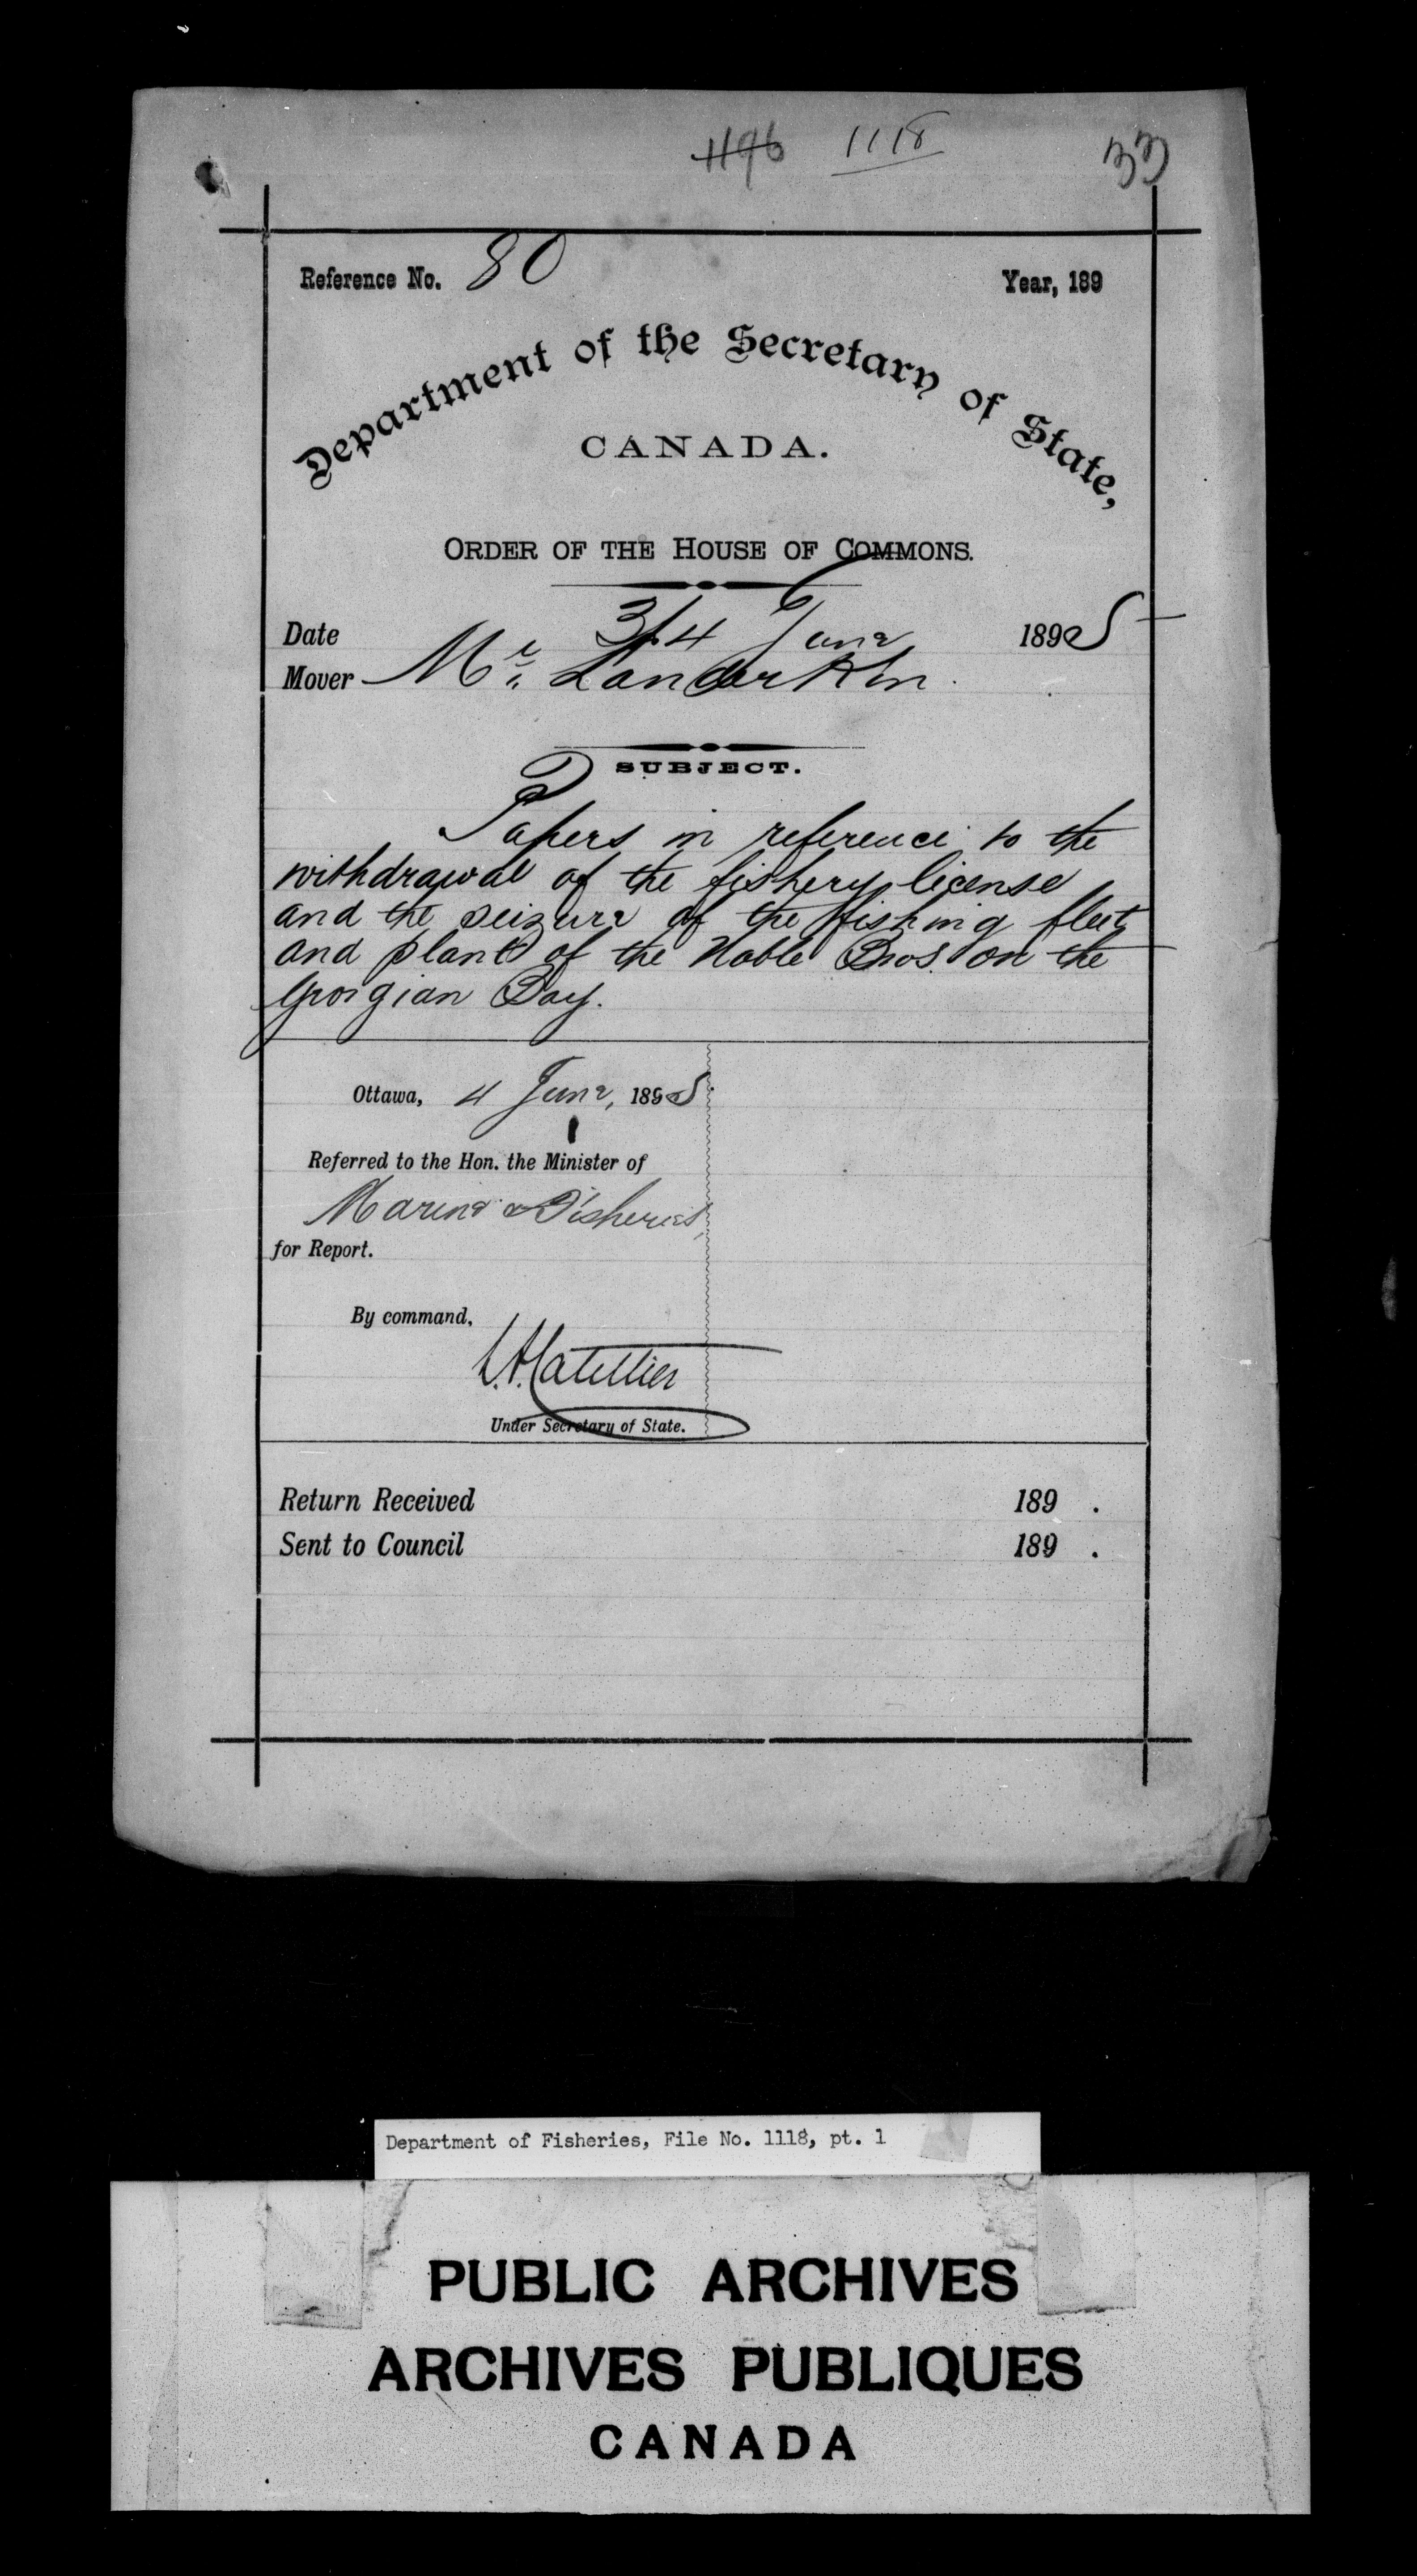 1196 1118 33
Reference No. 80 Year, 189
Department of the Secretary of State,
CANADA.
ORDER OF THE HOUSE OF COMMONS.
Date 3/4 June 1895
Mover Mr. Landerkin.
SUBJECT.
Papers in reference to the
withdrawal of the fishery license
and the seizure of the fishing fleet
and plant of the Noble Bros. on the
Georgian Bay.
Ottawa, 4 June, 1895.
Referred to the Hon. the Minister of
Marine & Fisheries,
for Report.
By command,
Catellier
Under Secretary of State.
Return Received 189 .
Sent to Council 189 .
Department of Fisheries, File No. 1118, pt. 1
PUBLIC ARCHIVES
ARCHIVES PUBLIQUES
CANADA